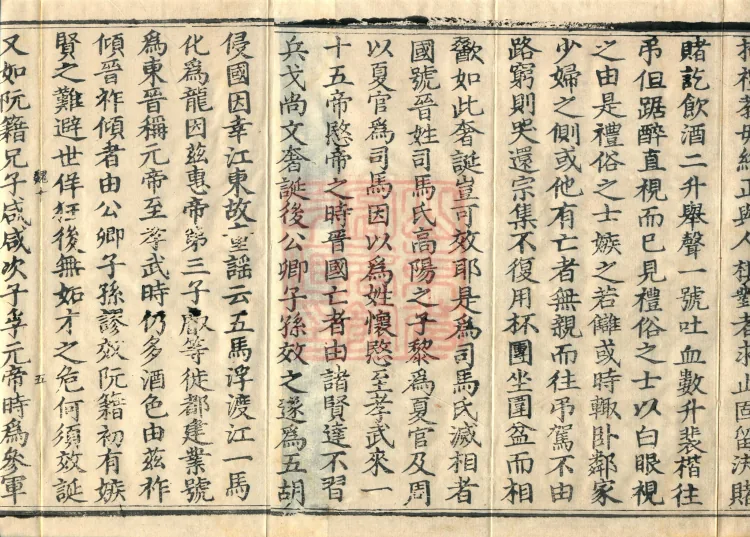 與人棋對者求止固留決賭
賭訖飲酒二升舉聲一號吐血數升裴楷往
弔但踞醉直視而已見禮俗之士以白眼視
之由是禮俗之士嫉之若讎或時輒卧鄰家
少婦之側或他有亡者無親而往弔駕不由
路窮則哭還宗集不復用杯團坐圍盆而相
歠如此奢誕豈可效耶是爲司馬氏滅相者
國號晉姓司馬氏高陽之子黎爲夏官及周
以夏官爲司馬因以爲姓懷愍至孝武來一
十五帝愍帝之時晉國亡者由諸賢達不習
兵戈尚文奢誕後公卿子孫效之遂爲五胡
侵國因幸江東故童謡云五馬浮渡江一馬
化爲龍因兹專帝第三子叡等徙都建業號
爲東晉稱元帝至孝武時仍多酒色由兹祚
傾晉祚傾者由公卿子孫謬效阮籍初有嫉
賢之難避世佯狂後無妬才之危何須效誕
魏十 五
又如阮籍兄子咸咸次子孚元帝時爲參軍